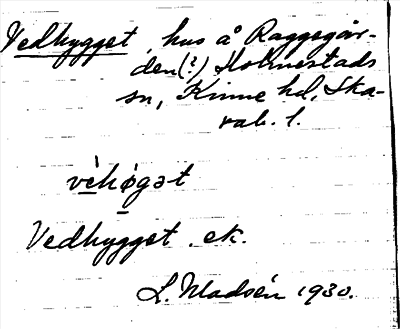 Vedhygget, hus å Raggegår-
den(?) Holmestads
sn, Kinne hd, Ska-
rab. l.
vèhøgət
Vedhygget. ek.
L. Madsén 1930.